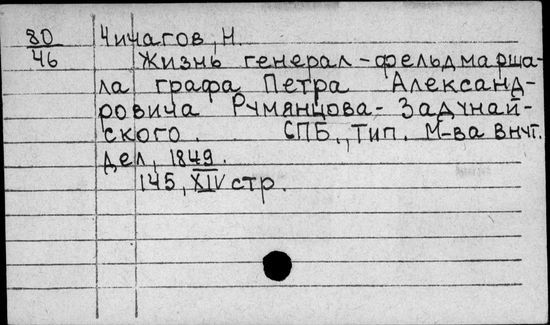 80 Чичагов, Н.
46 Жизнь генерал-фельдмарша-
ла графа Петра Александ-
ровича Румянцова-Задунай-
ского. СПБ., Тип. М-ва внут.
дел, 1849.
145, XIV стр.